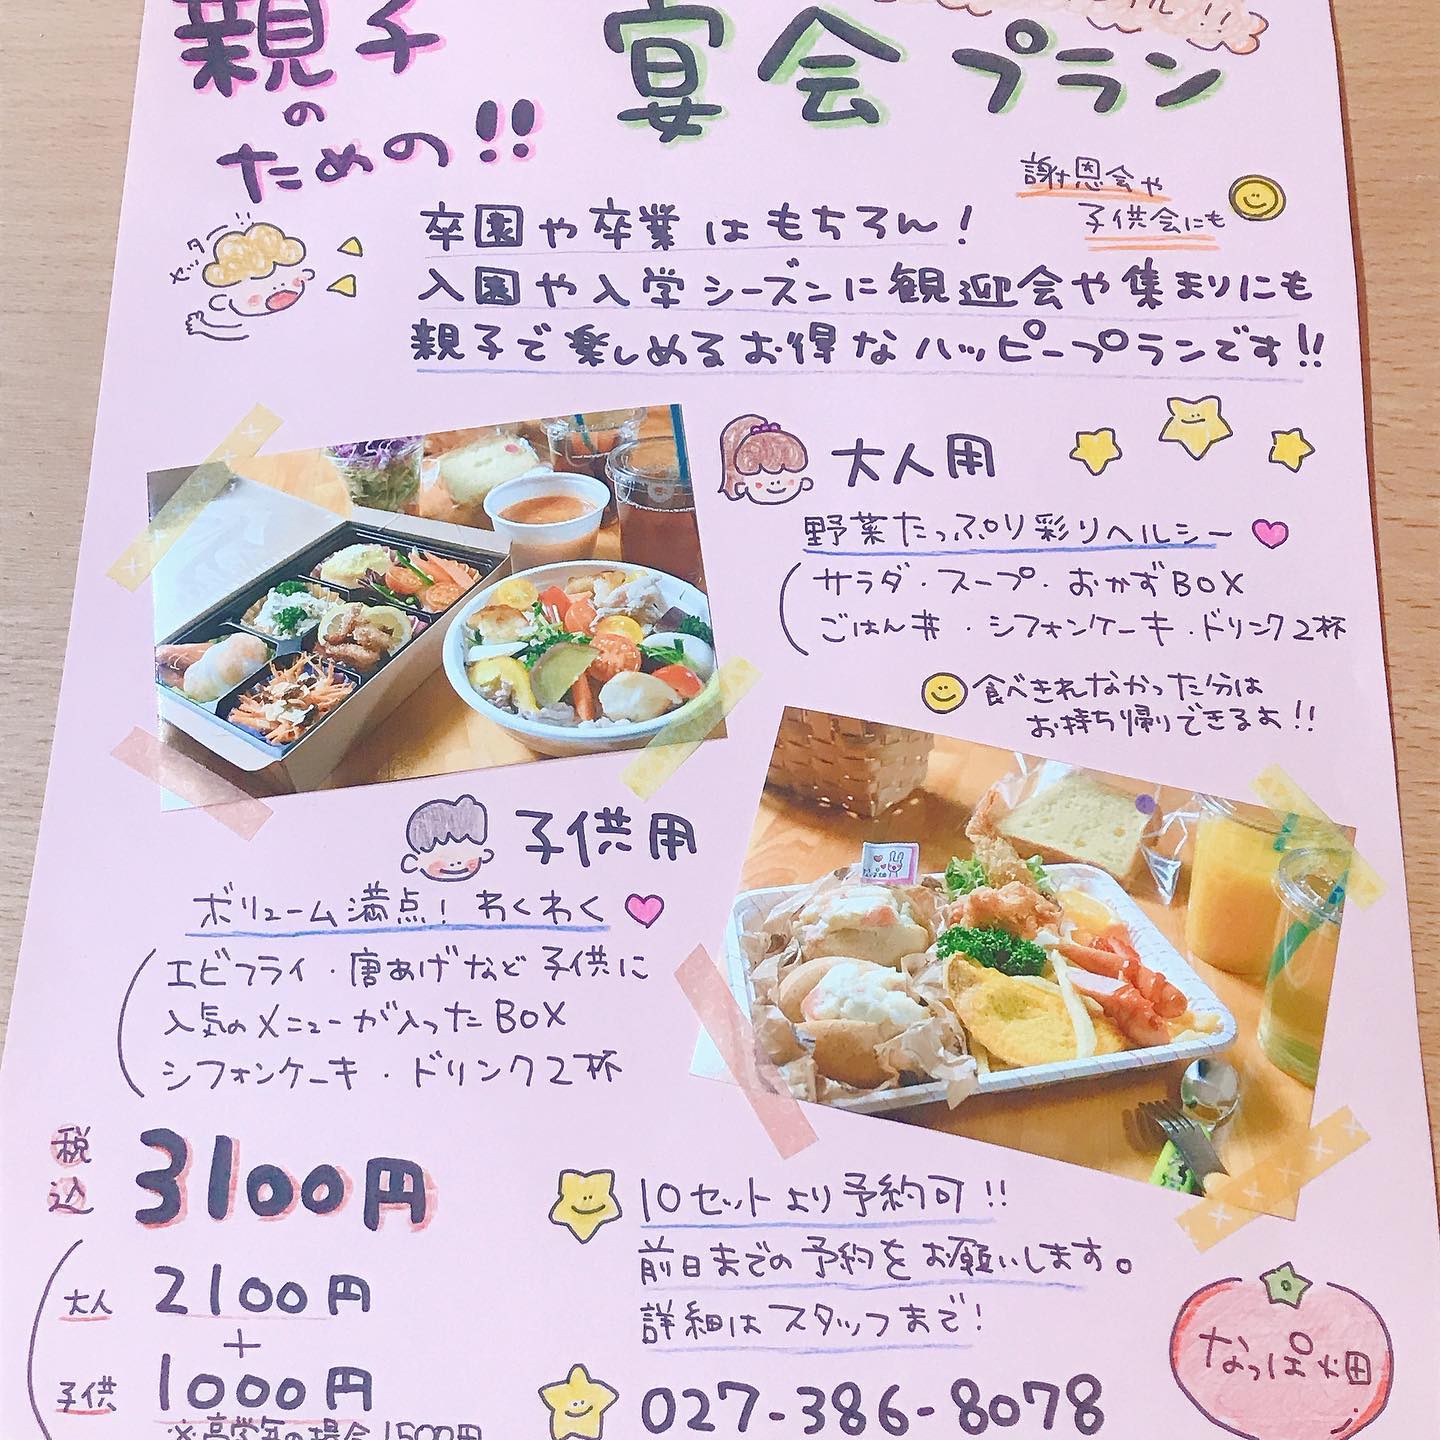 親子
の
ための!!
宴会プラン
ル!!
謝恩会や
子供会にも
卒園や卒業はもちろん!
入園や入学シーズンに観迎会や集まりにも
親子で楽しめるお得なハッピープランです!!
大人用
野菜たっぷり彩りヘルシー
サラダ・スープ・おかずBOX
ごはん丼・シフォンケーキ・ドリンク2杯
食べきれなかった分は
お持ち帰りできるよ!!
子供用
ボリューム満点!わくわく
エビフライ・唐あげなど子供に
人気のメニューが入ったBOX
シフォンケーキ・ドリンク2杯
税込
3100円
大人 2100円
+
子供 1000円
※高学年の場合1500円
10セットより予約可!!
前日までの予約をお願いします。
詳細はスタッフまで!
027-386-8078
なっぱ畑